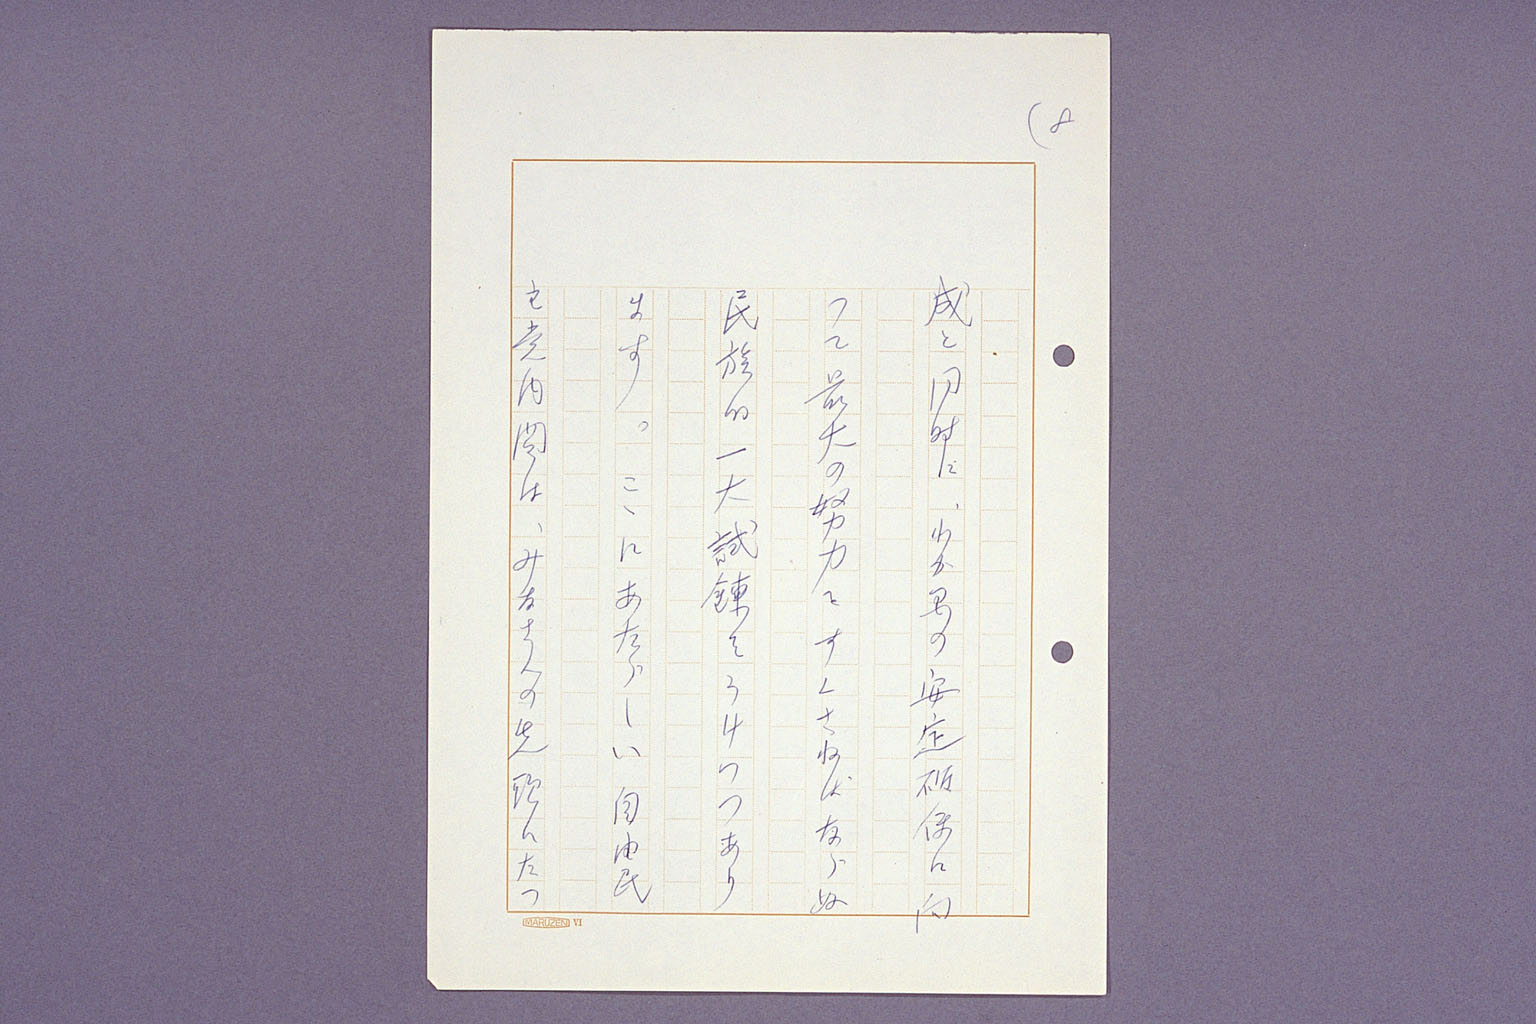 (8
成と同時に、わが国の安定確保に向
つて最大の努力をすくさねばならぬ
民族的一大試錬をうけつつあり
ます。こゝにあたらしい自由民
主党内閣は、みなさんの先頭にたつ
MARUZEN VI